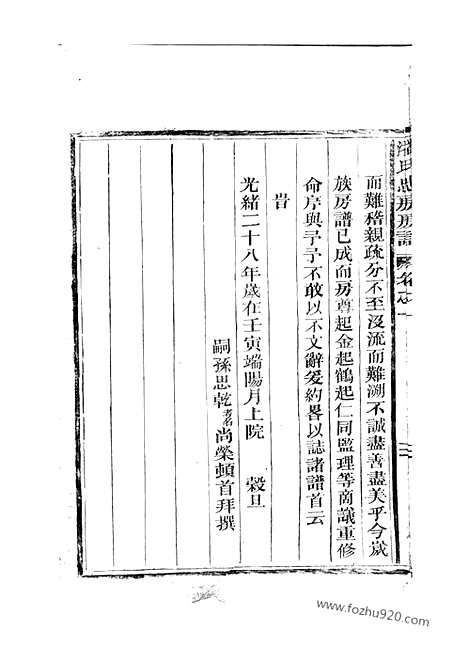 而難稽親疏分不至没流而難溯不誠盡善盡美乎今歲
族房譜已成而房尊起金起鶴起仁同監理等商議重修
命序與予予不敢以不文辭爰約畧以誌諸譜首云
旹
光緒二十八年歲在壬寅端陽月上院 穀旦
嗣孫思乾考名尚榮頓首拜撰
www.fozhu920.com